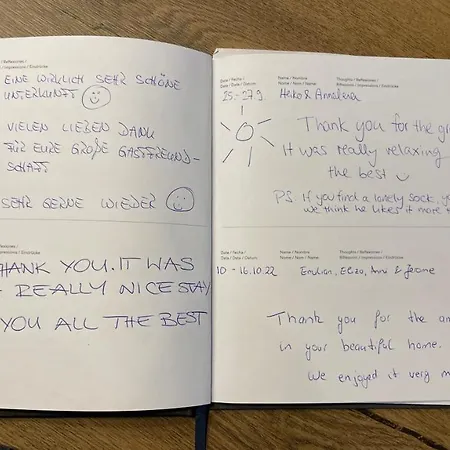 / Reflexiones /
/ Impressions / Eindrücke
EINE WIRKLICH SEHR SCHÖNE
UNTERKUNFT
VIELEN LIEBEN DANK
FÜR EURE GROßE GASTFREUND-
SCHAFT
SEHR GERNE WIEDER
/ Reflexiones /
/ Impressions / Eindrücke
THANK YOU. IT WAS
REALLY NICE STAY
YOU ALL THE BEST
Date / Fecha /
Date / Datum
Name / Nombre
Nom / Nome / Name
Thoughts / Reflexiones /
Riflessioni / Impressions / Eindrücke
25.-27.9.
Heiko & Annalena
Thank you for the
It was really relaxing
the best
PS: If you find a lonely sock,
we think he likes it more
Date / Fecha /
Date / Data / Datum
Name / Nombre
Nom / Nome / Name
Thoughts / Reflexiones /
Riflessioni / Impressions / Eindrücke
10 - 16.10.22
Emilian, & Jerome
Thank you for the
in your beautiful home.
We enjoyed it very